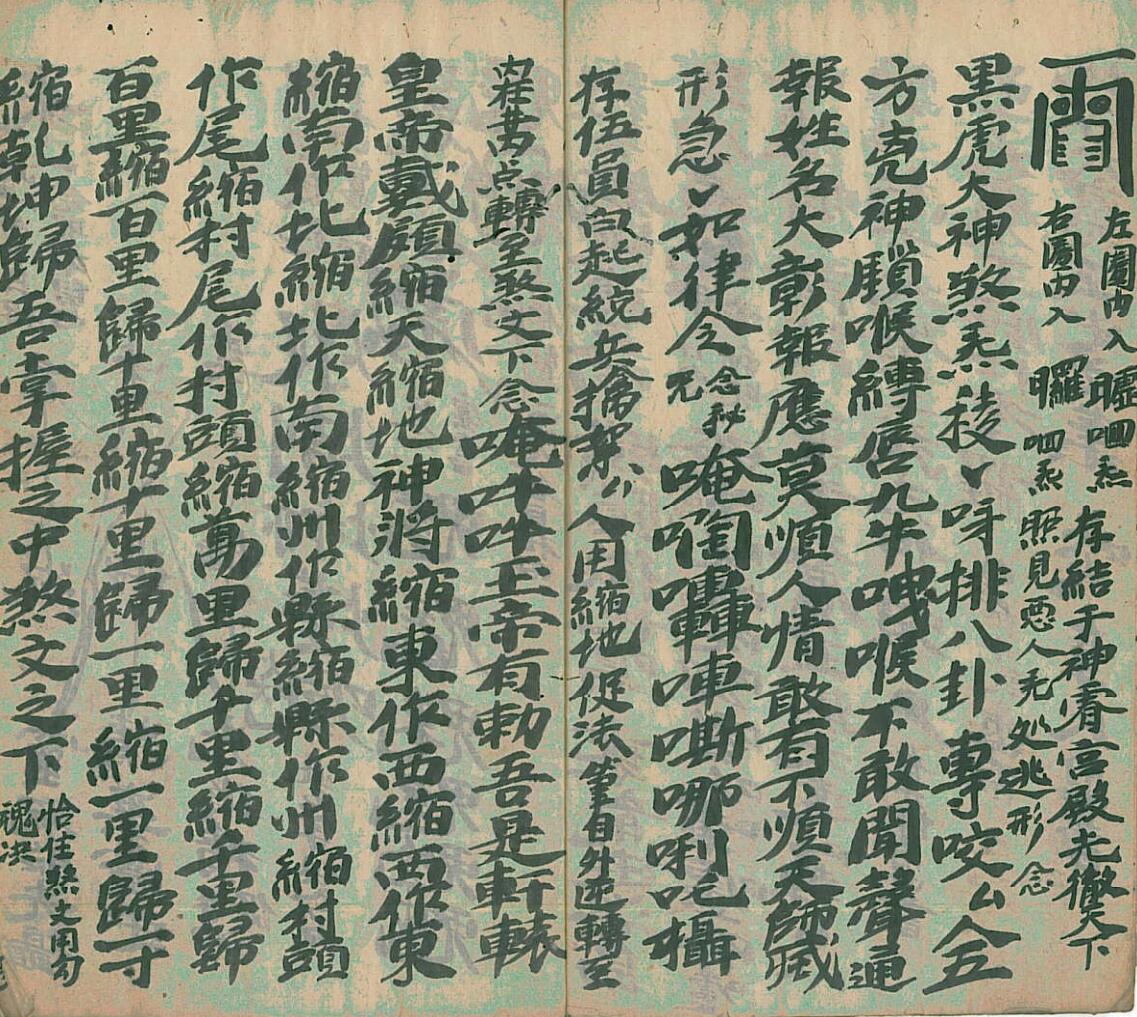 左圈内入 𭿇呬炁 存結于神霄宮殿光徹天下
右圈内入 囉呬炁 照見惡人无処逃形 念
黑虎大神煞炁稜〻呀排八卦專咬么 金
方克神鎖喉縛唇九牛哋喉不敢聞聲通
報姓名大彰報應莫順人情敢有不順天師滅
形急〻如律令 念秘咒 唵 嚩唓嘶哪唎吒攝
存伍員白起統兵擒某〻人用縮地促法筆自外逆轉至
内在苗点轉至煞文下念唵吽吽玉帝有勅吾是軒轅
皇帝戴顧縮天縮地神將縮東作西縮西作東
縮南作北縮北作南縮州作縣縮縣作州縮村頭
作尾縮村尾作村頭縮萬里歸千里縮千里歸
百里縮百里歸十里縮十里歸一里縮一里歸一寸
縮乾坤歸吾掌握之中煞文之下 恰住煞文用勾
魂決